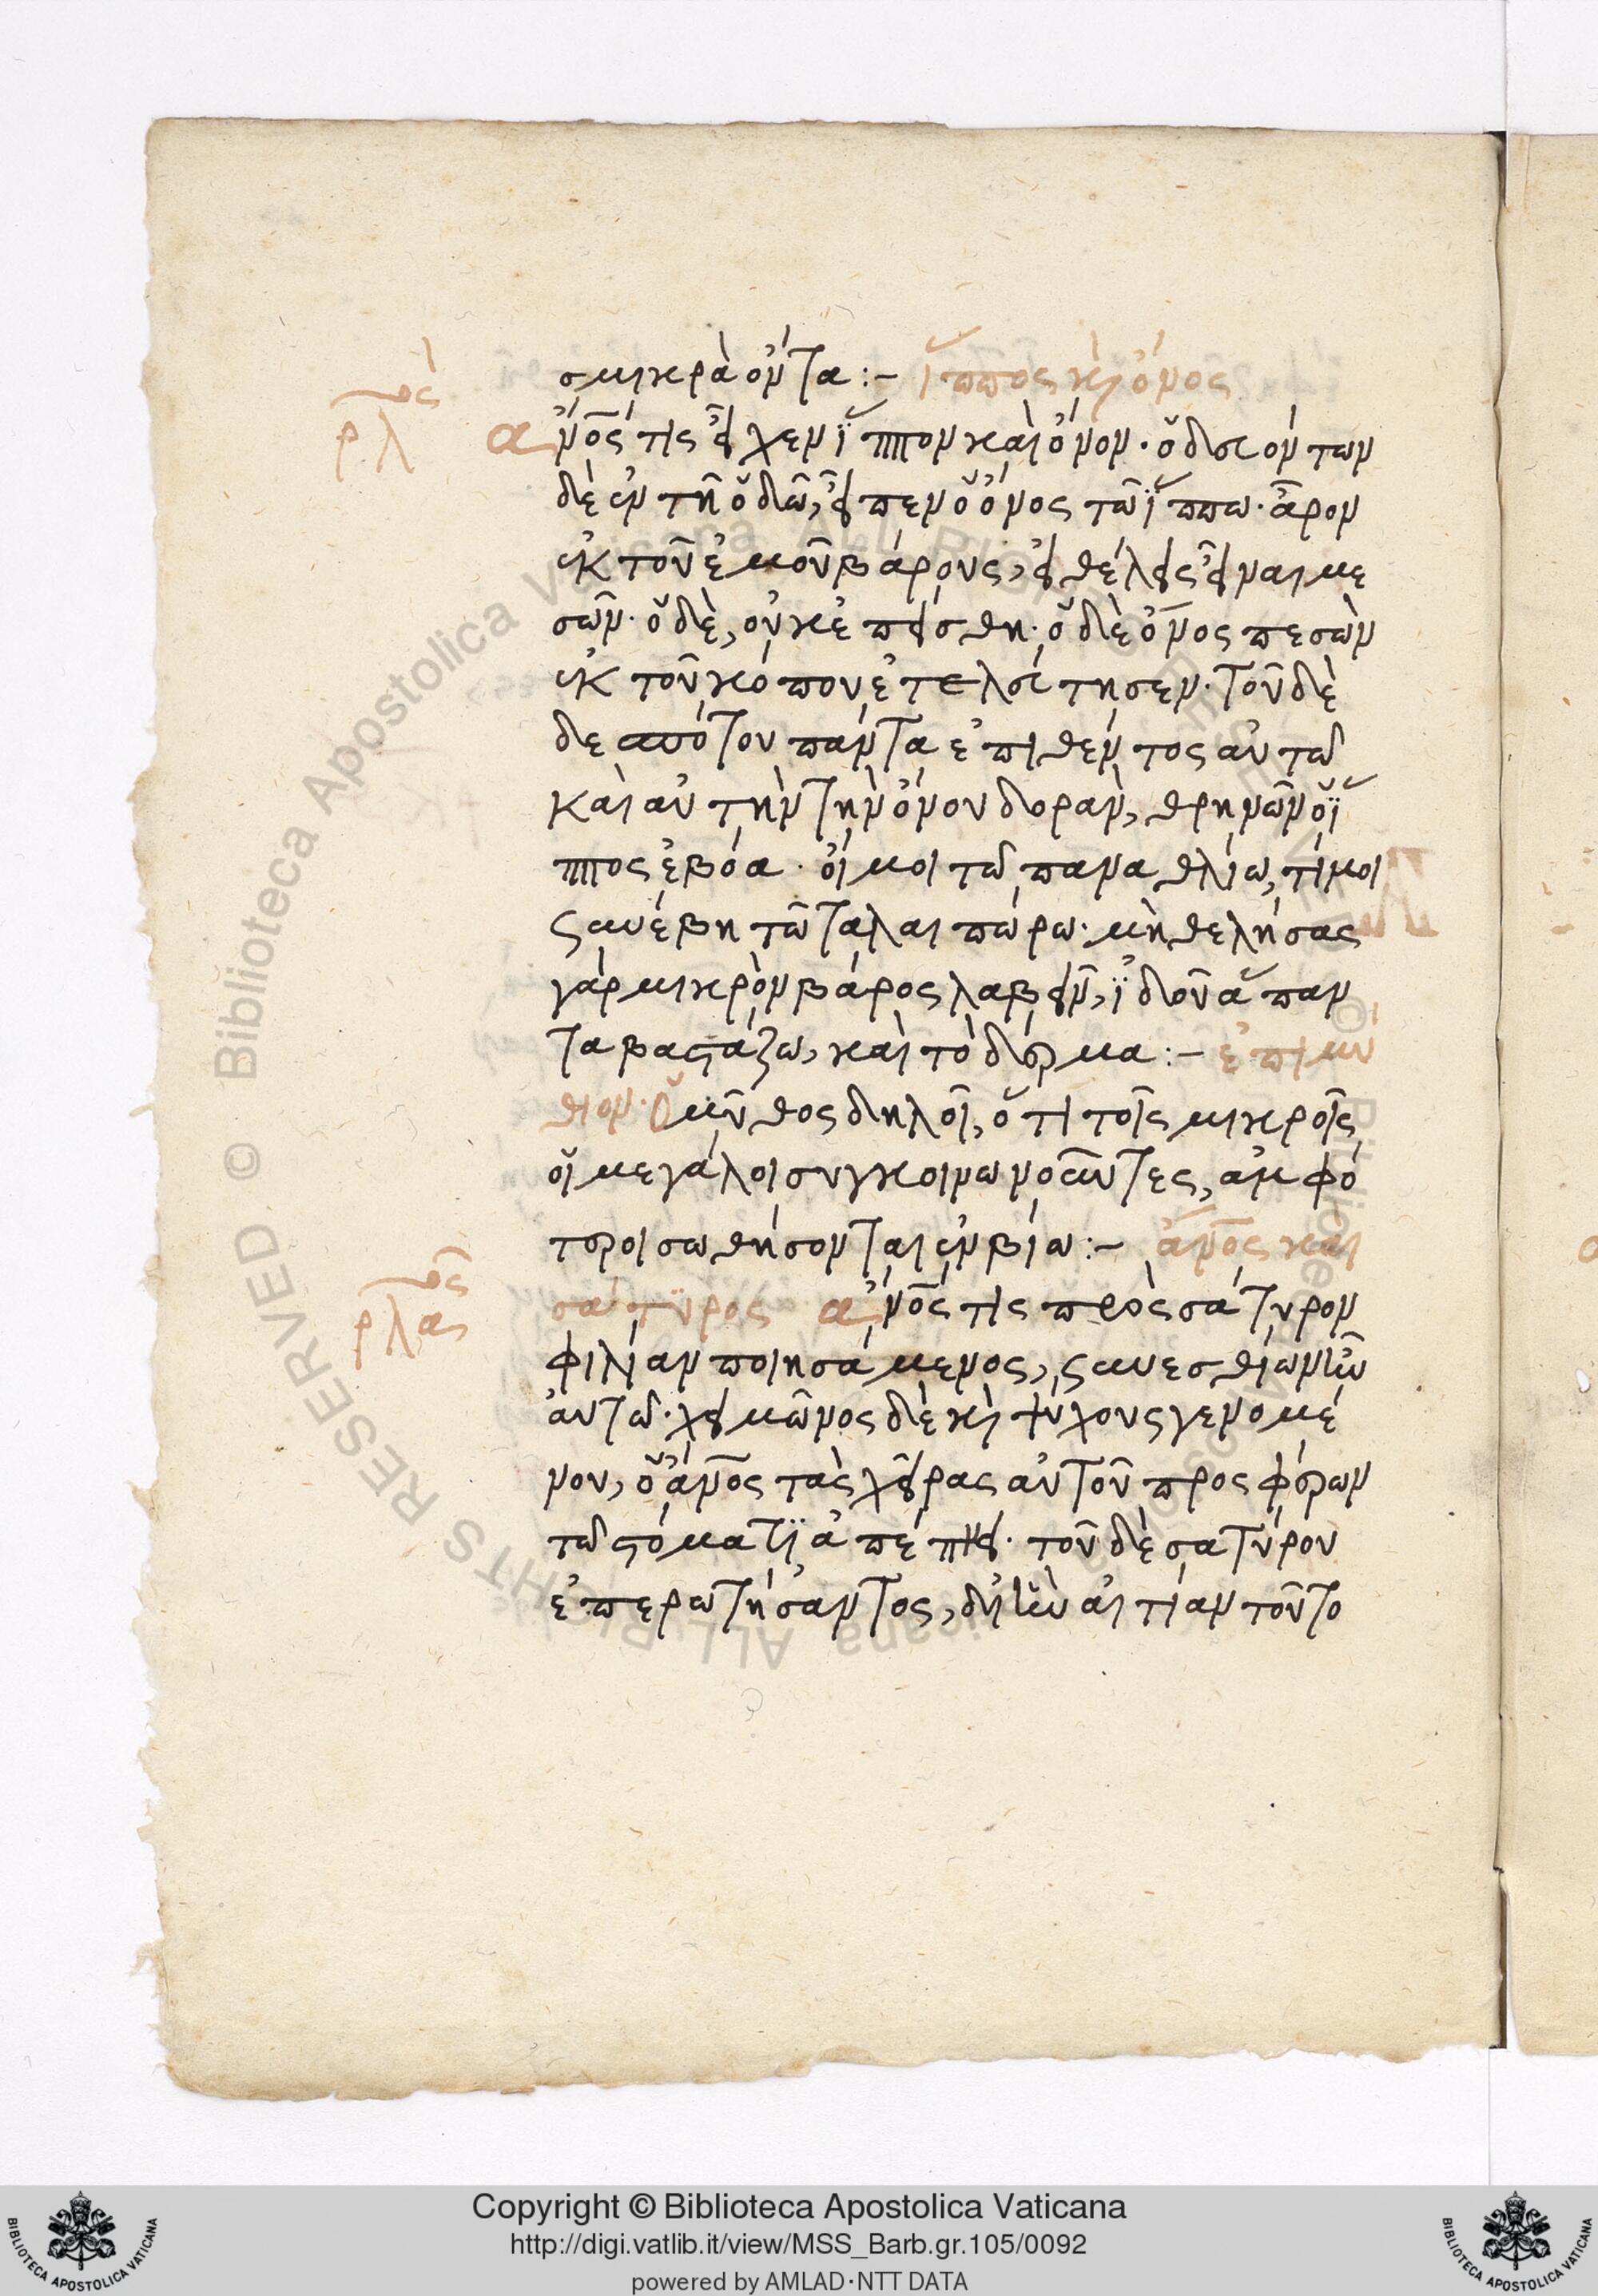 σμικρὰ ὄντα :- ἵππος κὶ ὄνος
ρλος ἀνος τίς εἶχεν ἵππον καὶ ὄνον · ὁδευόντων
δὲ ἐν τῇ ὁδῶ, εἶπεν ὁ ὄνος τῶ ἵππω · ἆρον
ἐκ τοῦ ἐμοῦ βάρους, εἰ θέλεις εἶναι με
σῶν · ὁ δὲ, οὐκ ἐπείσθη · ὁ δὲ ὄνος πεσὼν
ἐκ τοῦ κόπου ἐτελεύτησεν · τοῦ δὲ
δεσπότου πάντα ἐπιθέντος αὐτῶ
καὶ αὐτὴν τὴν ὄνου δορὰν, θρηνῶν ὁ ἵπ
πος ἐβόα · οἴμοι τῶ παναθλίω, τί μοι
συνέβη τῶ ταλαιπώρω · μὴ θελήσας
γὰρ μικρὸν βάρος λαβεῖν, ἰδοῦ ἅπαν
τα βαστάζω, καὶ τὸ δέρμα :- ἐπιμύ
θιον · Ὁ μῦθος δηλοῖ, ὅτι τοῖς μικροῖς
οἱ μεγάλοι συγκοινωνοῦντες, ἀμφό
τεροι σωθήσονται ἐν βίω :- ἄνος καὶ
σάτυρος ἄνος τίς πρὸς σάτυρον
ρλαος
φιλίαν ποιησάμενος, συνεσθίων ἦν
αὐτῶ · χειμῶνος δὲ κὶ ψύχους γενομέ
νου, ὁ ἄνος τὰς χεῖρας αὐτοῦ προσφέρων
τῶ στόματι ἀπέπνει · τοῦ δὲ σατύρου
ἐπερωτήσαντος, δι' ἣν αἰτίαν τοῦτο
Copyright © Biblioteca Apostolica Vaticana
http://digi.vatlib.it/view/MSS_Barb.gr.105/0092
powered by AMLAD·NTT DATA
BIBLIOTECA APOSTOLICA VATICANA
BIBLIOTECA APOSTOLICA VATICANA